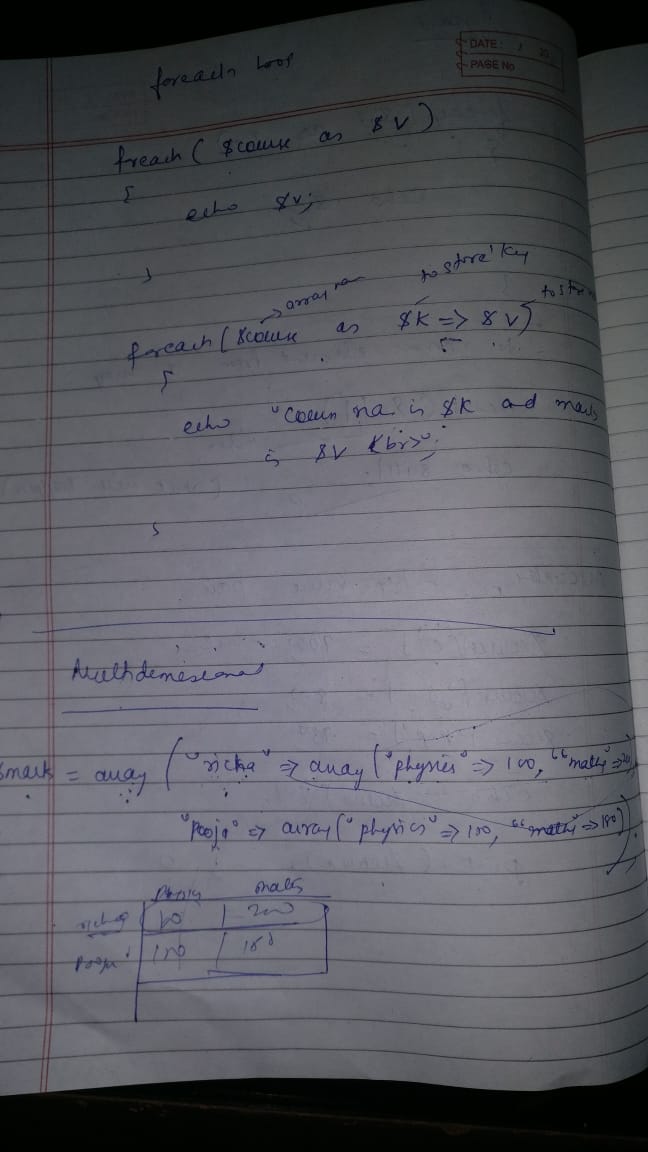 DATE: / 20
PAGE No
foreach loop
freach ( $course as $v )
{
echo $v;
}
to store key
array na
to st
foreach ( $course as $K => $V )
{
echo "Cours na is $K and marks
is $V <br>";
}
Multidimesional
$mark = array ( "richa" => array ( "physics" => 100, "maths" =>
"Pooja" => array ( "physics" => 100, "maths" => 180 ) );
physics maths
richa 100 200
Pooja